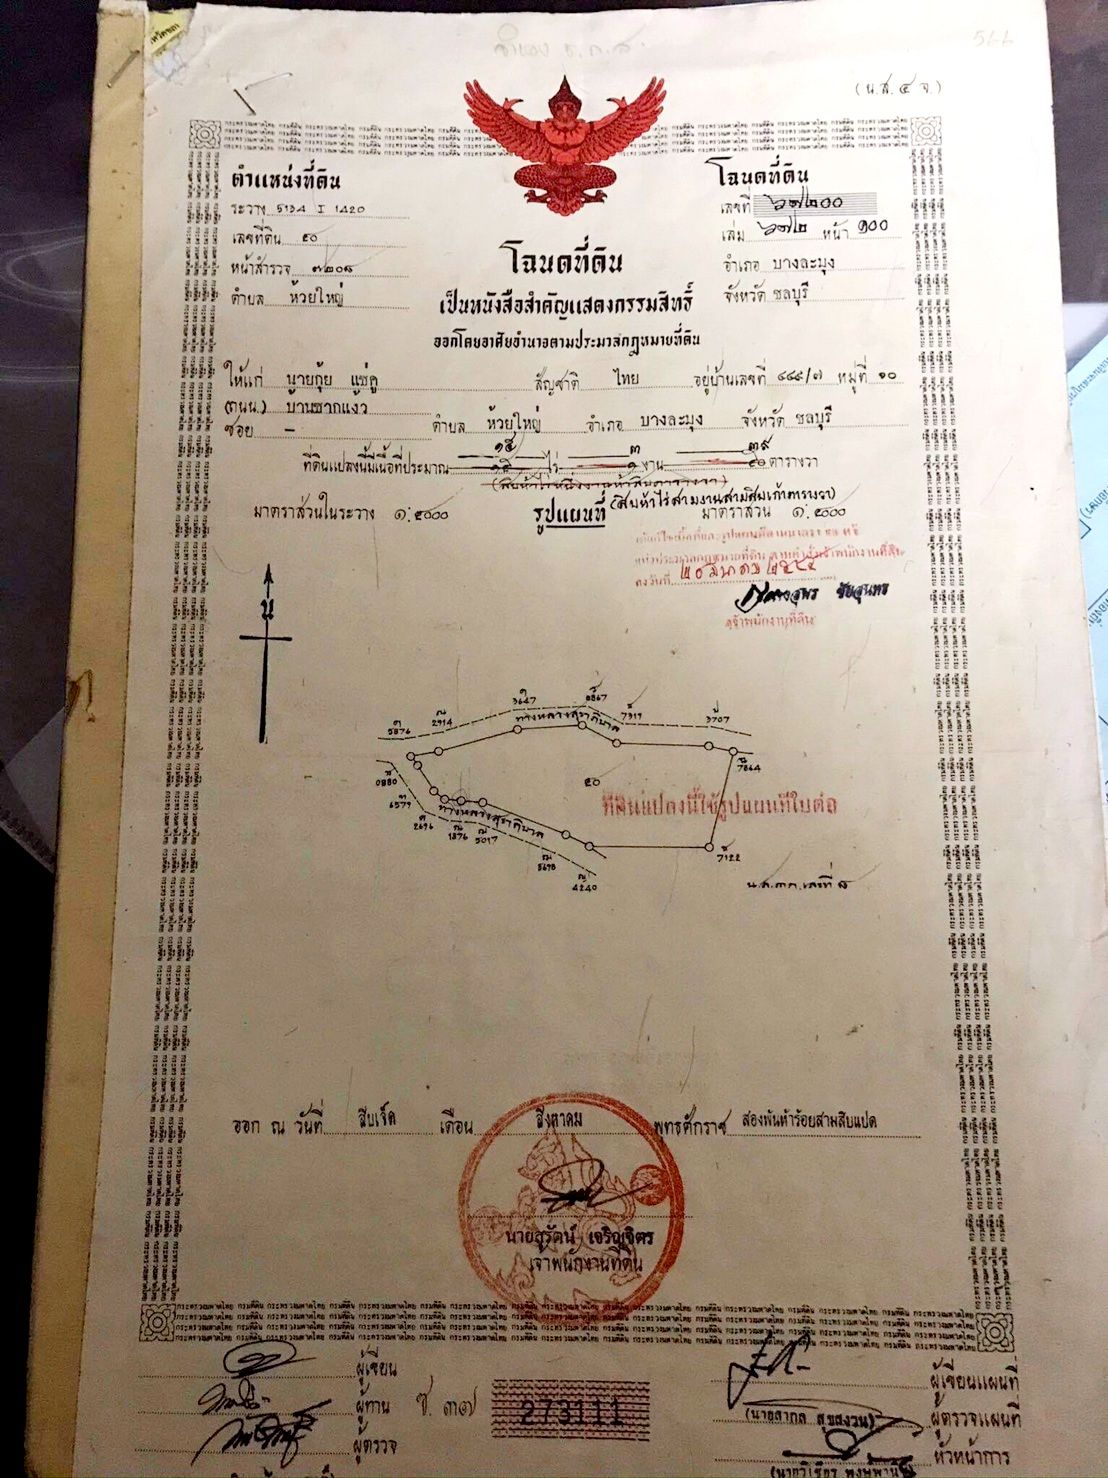 (น.ส.๔ จ.)
ตำแหน่งที่ดิน
ระวาง 5134 I 1420
เลขที่ดิน ๕๐
หน้าสำรวจ ๓๒๐๘
ตำบล ห้วยใหญ่
โฉนดที่ดิน
เลขที่ ๖๗๒๐๐
เล่ม ๖๗๒ หน้า ๑๐๐
อำเภอ บางละมุง
จังหวัด ชลบุรี
โฉนดที่ดิน
เป็นหนังสือสำคัญแสดงกรรมสิทธิ์
ออกโดยอาศัยอำนาจตามประมวลกฎหมายที่ดิน
ให้แก่ นายกุ้ย แซ่คู สัญชาติ ไทย อยู่บ้านเลขที่ ๔๔๙/๗ หมู่ที่ ๑๐
(ถนน.) บ้านชากแง้ว
ซอย – ตำบล ห้วยใหญ่ อำเภอ บางละมุง จังหวัด ชลบุรี
๑๕ ๓ ๓๙
ที่ดินแปลงนี้มีเนื้อที่ประมาณ ๑๕ ไร่ ๑ งาน ๕๐ ตารางวา
(สิบห้าไร่หนึ่งงานห้าสิบตารางวา)
(สิบห้าไร่สามงานสามสิบเก้าตารางวา)
มาตราส่วนในระวาง ๑:๕๐๐๐ รูปแผนที่ มาตราส่วน ๑:๕๐๐๐
เจ้าพนักงานที่ดิน
น
3647
8867
7319
3707
2914
5876
ทางหลวงสุขาภิบาล
7864
0880
6579
2696
1876
5017
ทางหลวงสุขาภิบาล
5698
4240
๕๐
ที่ดินแปลงนี้ใช้รูปแผนที่ใบต่อ
7122
น.ส.๓ก.เลขที่ ๘
ออก ณ วันที่ สิบเจ็ด เดือน สิงหาคม พุทธศักราช สองพันห้าร้อยสามสิบแปด
นายสุรัตน์ เจริญจิตร
เจ้าพนักงานที่ดิน
ผู้เขียน
ผู้ทาน
ผู้ตรวจ
ช. ๓๗
273111
ผู้เขียนแผนที่
(นายสากล สุขสงวน) ผู้ตรวจแผนที่
หัวหน้าการ